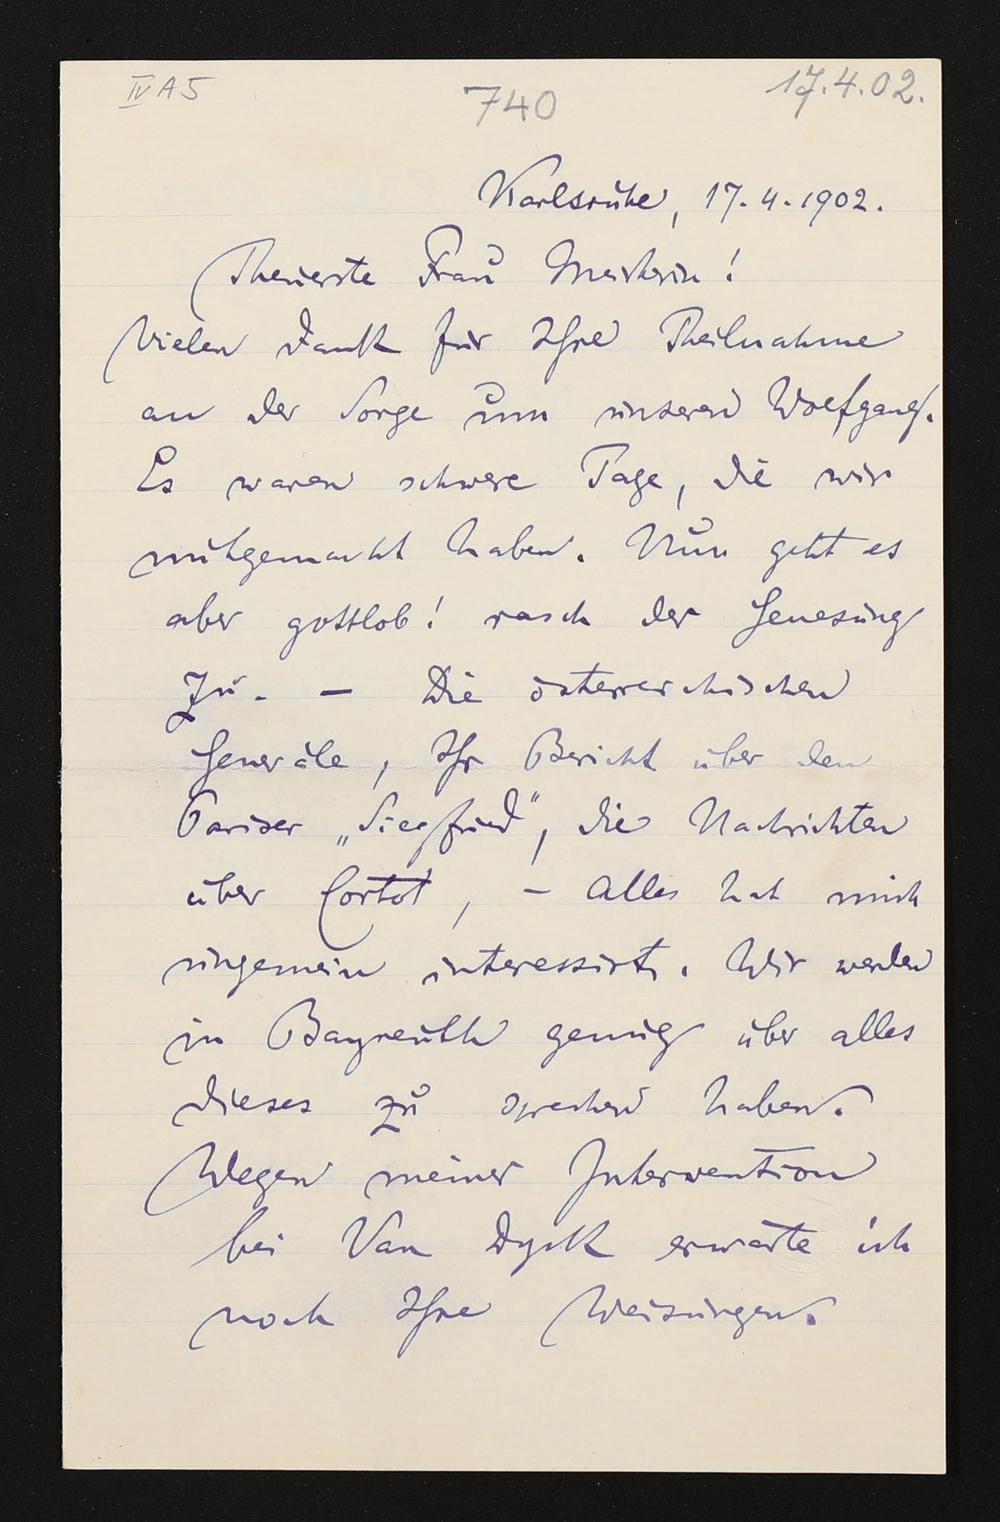 IV A 5
740
17.4.02.
Karlsruhe, 17.4.1902.
Theuerste Frau Meisterin!
Vielen Dank für Ihre Theilnahme
an der Sorge um unseren Wolfgang.
Es waren schwere Tage, die wir
mitgemacht haben. Nun geht es
aber gottlob! rasch der Genesung
zu. – Die österreichischen
Generäle, Ihr Bericht über den
Pariser „Siegfried", die Nachrichten
über Cortot, – alles hat mich
ungemein interessirt. Wir werden
in Bayreuth genug über alles
dieses zu sprechen haben.
Wegen meiner Intervention
bei Van Dyck erwarte ich
noch Ihre Weisungen.